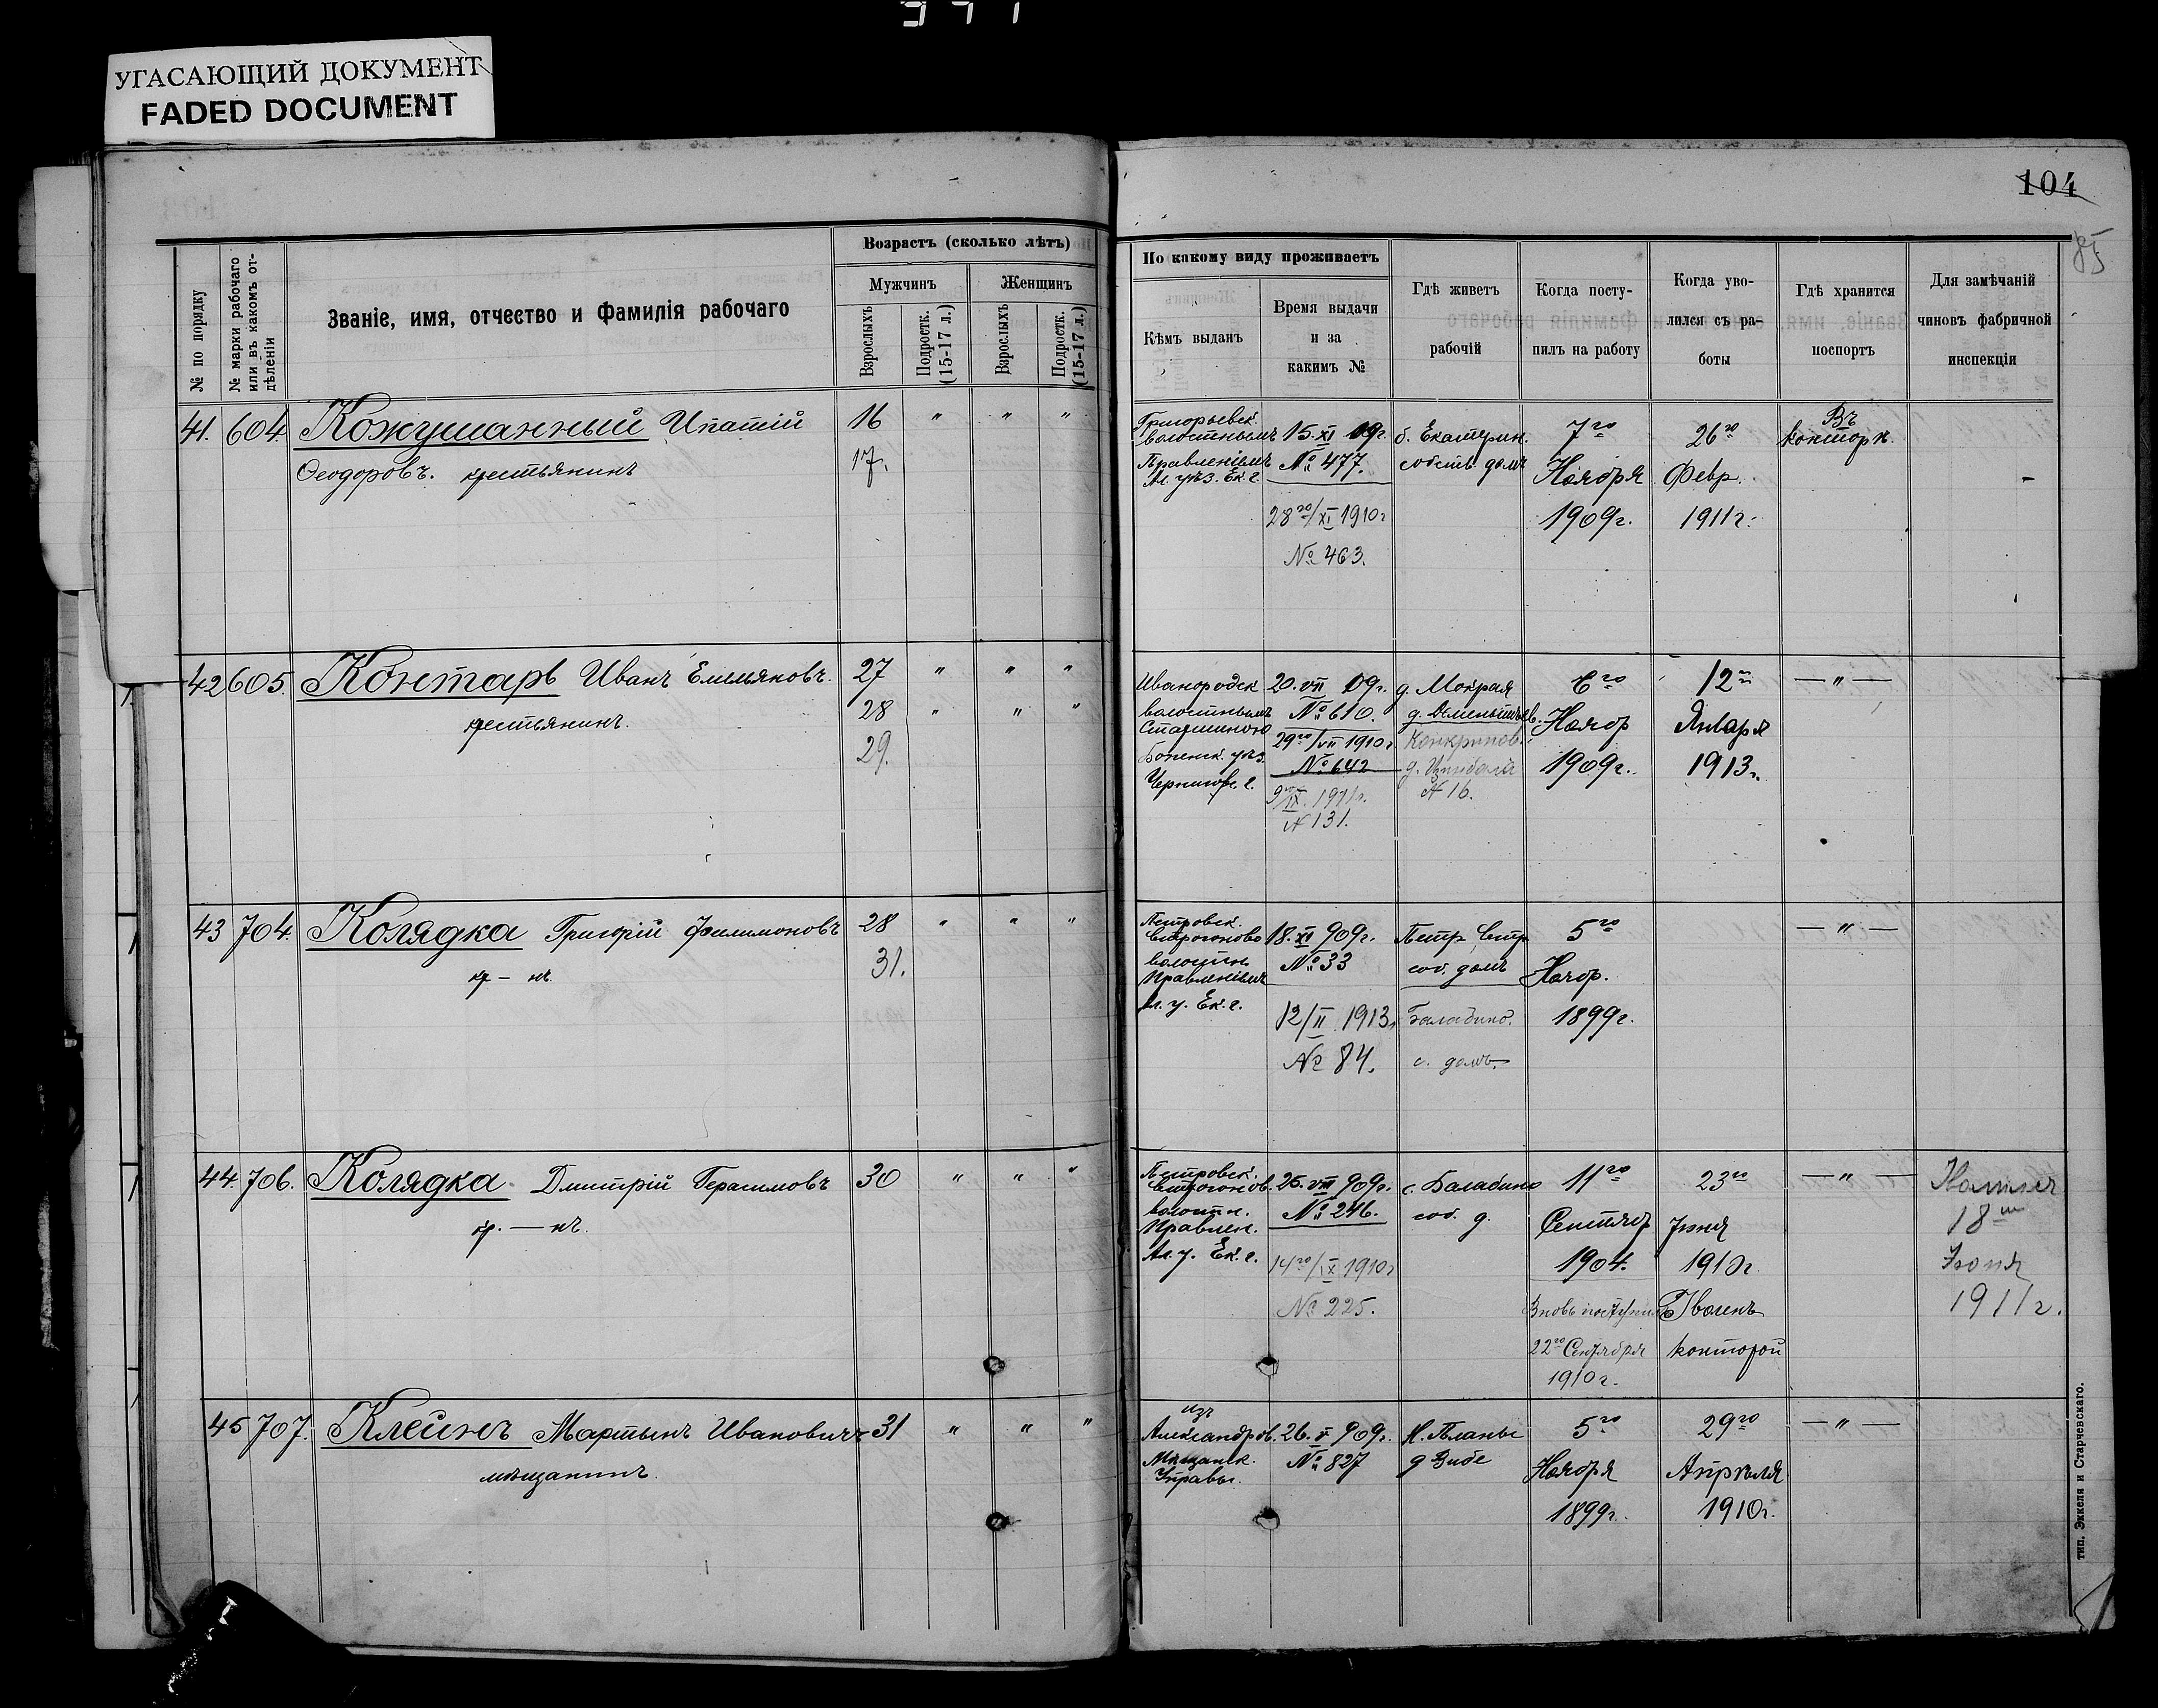 УГАСАЮЩИЙ ДОКУМЕНТ
FADED DOCUMENT
104
85
№ по порядку
№ марки рабочаго или въ какомъ отдѣленіи
Званіе, имя, отчество и фамилія рабочаго
Возрастъ (сколько лѣтъ)
Мужчинъ
Женщинъ
Взрослыхъ
Подростк. (15-17 л.)
Взрослыхъ
Подростк. (15-17 л.)
По какому виду проживаетъ
Кѣмъ выданъ
Время выдачи
и за
какимъ №
Гдѣ живетъ
рабочій
Когда посту-
пилъ на работу
Когда уво-
лился съ ра-
боты
Гдѣ хранится
поспортъ
Для замѣчаній
чиновъ фабричной
инспекціи
41. 604 Кожушанный Ипатій 16 " " "
Ѳеодоровъ. крестьянинъ 17.
Григорьевск.
волостнымъ
Правленіемъ
Ал. уѣз. Ек. г.
15. XI 09 г.
№ 477.
28го/XI 1910 г
№ 463.
б. Екатерин.
собств. домъ
7го
Ноября
1909 г.
26го
Февр.
1911 г.
Въ
конторѣ
42 605. Контарь Иванъ Емельяновъ. 27 " " "
крестьянинъ. 28 " " "
29.
Иванородск
волостнымъ
Старшиною
уѣз.
Чернигов. г.
20. VII 09 г.
№ 610.
29го/VII 1910 г
№ 642
9го/IX. 1911 г.
№ 131.
д. Мокрая
№ 16.
6го
Ноябр
1909 г.
12го
Января
1913 г.
— " —
43 704. Колядка Григорій Филимоновъ 28 " " "
кр-нъ 31.
Петровск.
волостн.
Правленіемъ
Ал. у. Ек. г.
18. XI 909 г.
№ 33
12/II 1913 г
№ 84.
соб. домъ
Балабино.
с. домъ.
5го
Ноябр.
1899 г.
— " —
44. 706. Колядка Дмитрій Герасимовъ 30 " " "
кр.—нъ.
Петровск.
волостн.
Правлен.
Ал. у. Ек. г.
25. VIII 909 г.
№ 246.
14го/IX 1910 г
№ 225.
с. Балабино
соб. д.
11го
Сентябр
1904.
Вновь поступилъ
22го Сентября
1910 г.
23го
Іюня
1910 г.
Уволенъ
конторой
— " —
18го
Іюня
1911 г.
45 707. Клейнъ Мартынъ Ивановичъ 31 " " "
мѣщанинъ.
Изъ
Александров.
Мѣщанск.
Управы.
26. V 909 г.
№ 827
К. Планы
д Зибе
5го
Ноября
1899 г.
29го
Апрѣля
1910 г.
— " —
тип. Эккеля и Старчевскаго.